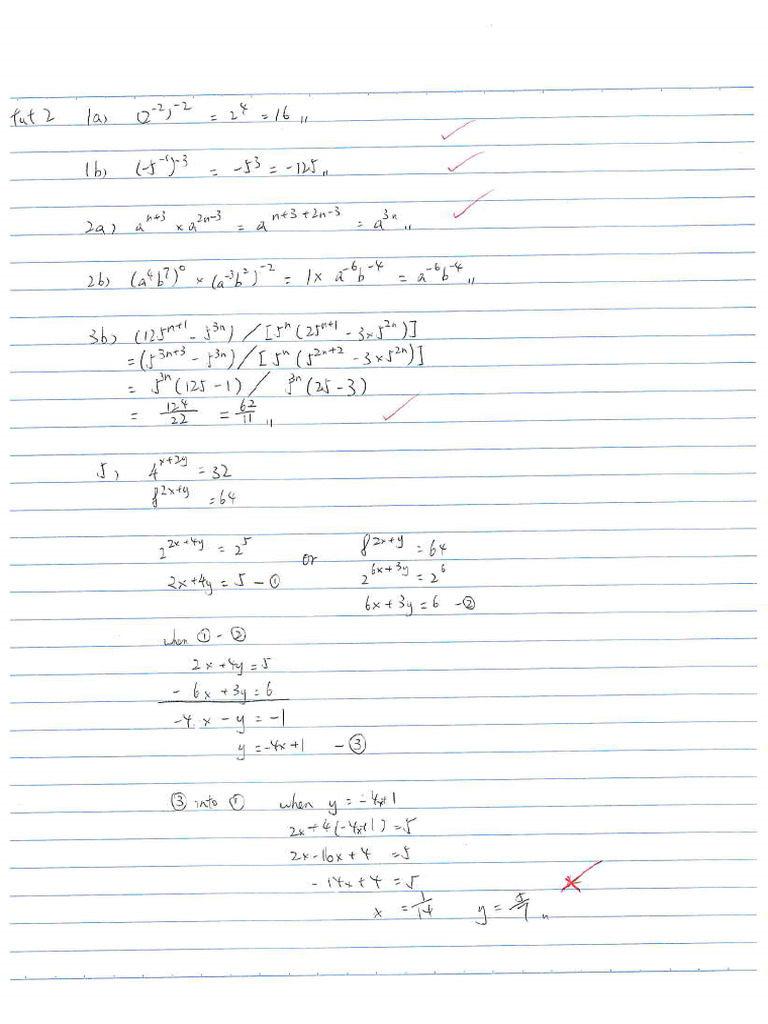 Tut 2 1a) (2⁻²)⁻² = 2⁴ = 16 ,,
1b) (-5⁻¹)⁻³ = -5³ = -125 ,,
2a) aⁿ⁺³ × a²ⁿ⁻³ = aⁿ⁺³⁺²ⁿ⁻³ = a³ⁿ ,,
2b) (a⁴b⁷)⁰ × (a⁻³b²)⁻² = 1 × a⁻⁶b⁻⁴ = a⁻⁶b⁻⁴ ,,
3b) (125ⁿ⁺¹ - 5³ⁿ) / [5ⁿ (25ⁿ⁺¹ - 3×5²ⁿ)]
= (5³ⁿ⁺³ - 5³ⁿ) / [5ⁿ (5²ⁿ⁺² - 3×5²ⁿ)]
= 5³ⁿ (125 - 1) / 5³ⁿ (25 - 3)
= 124/22 = 62/11 ,,
5) 4^(x+2y) = 32
8^(2x+y) = 64
2^(2x+4y) = 2⁵ or 8^(2x+y) = 64
2x+4y = 5 - ① 2^(6x+3y) = 2⁶
6x+3y = 6 - ②
when ① - ②
2x+4y = 5
- 6x+3y = 6
-4x - y = -1
y = -4x+1 - ③
③ into ① when y = -4x+1
2x+4(-4x+1) = 5
2x-16x+4 = 5
-14x+4 = 5
x = 1/14 y = 5/7 ,,